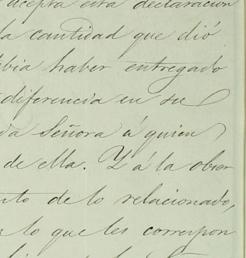 acepta esta declaracion
la cantidad que dió
bia haber entregado
diferencia en su
da Señora á quien
de ella. Y á la obser
nto de lo relacionado,
lo que les correspon